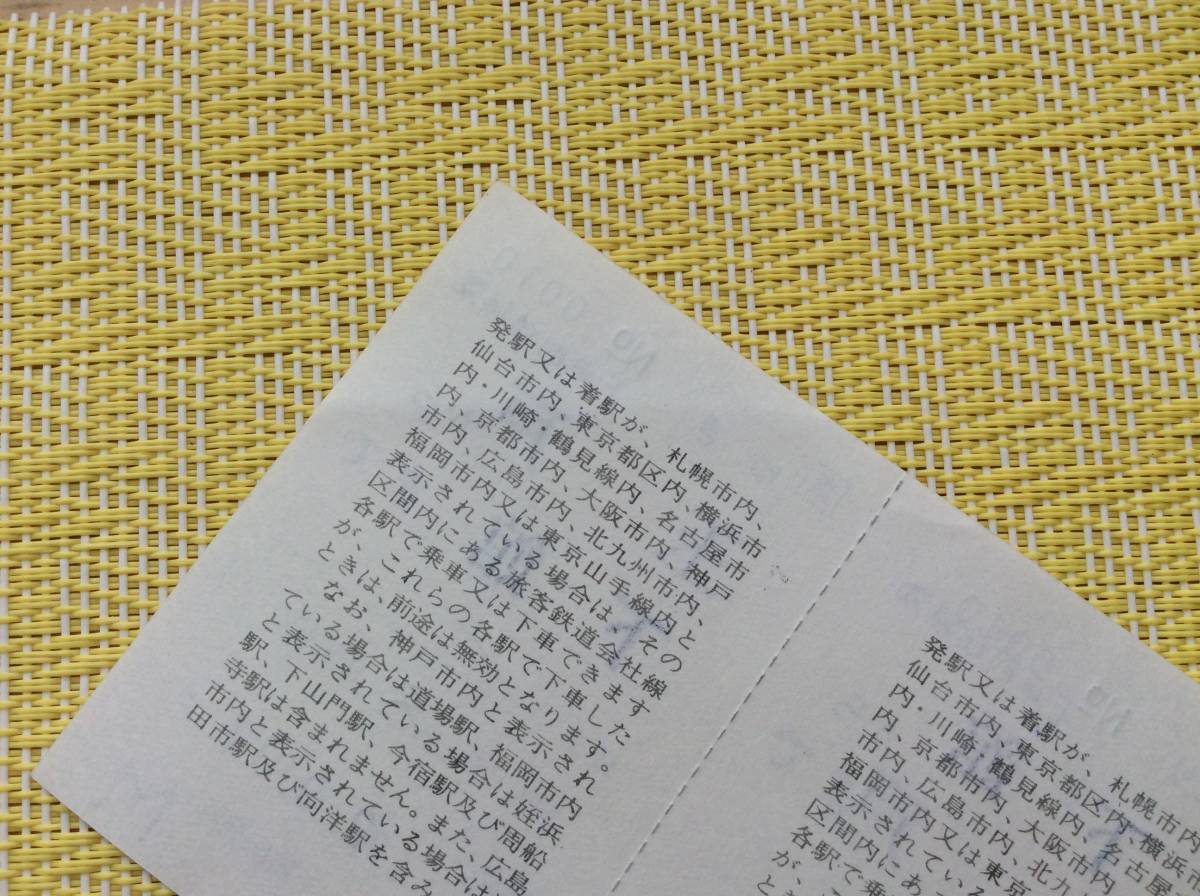 発駅又は着駅が、札幌市内、
仙台市内、東京都区内、横浜市
内・川崎・鶴見線内、名古屋市
内、京都市内、大阪市内、神戸
市内、広島市内、北九州市内、
福岡市内又は東京山手線内と
表示されている場合は、その
区間内にある旅客鉄道会社線
各駅で乗車又は下車できます
が、これらの各駅で下車した
ときは、前途は無効となります。
なお、神戸市内と表示され
ている場合は道場駅、福岡市内
と表示されている場合は姪浜
駅、下山門駅、今宿駅及び周船
寺駅は含まれません。また、広島
市内と表示されている場合は
田市駅及び向洋駅を含み
発駅又は着駅が、札幌市内
仙台市内、東京都区内、横浜
内・川崎・鶴見線内、名古屋
内、京都市内、大阪市内
市内、広島市内、北九
福岡市内又は東京
表示されている
区間内にあ
各駅で乗
が、こ
と
No 0010
No